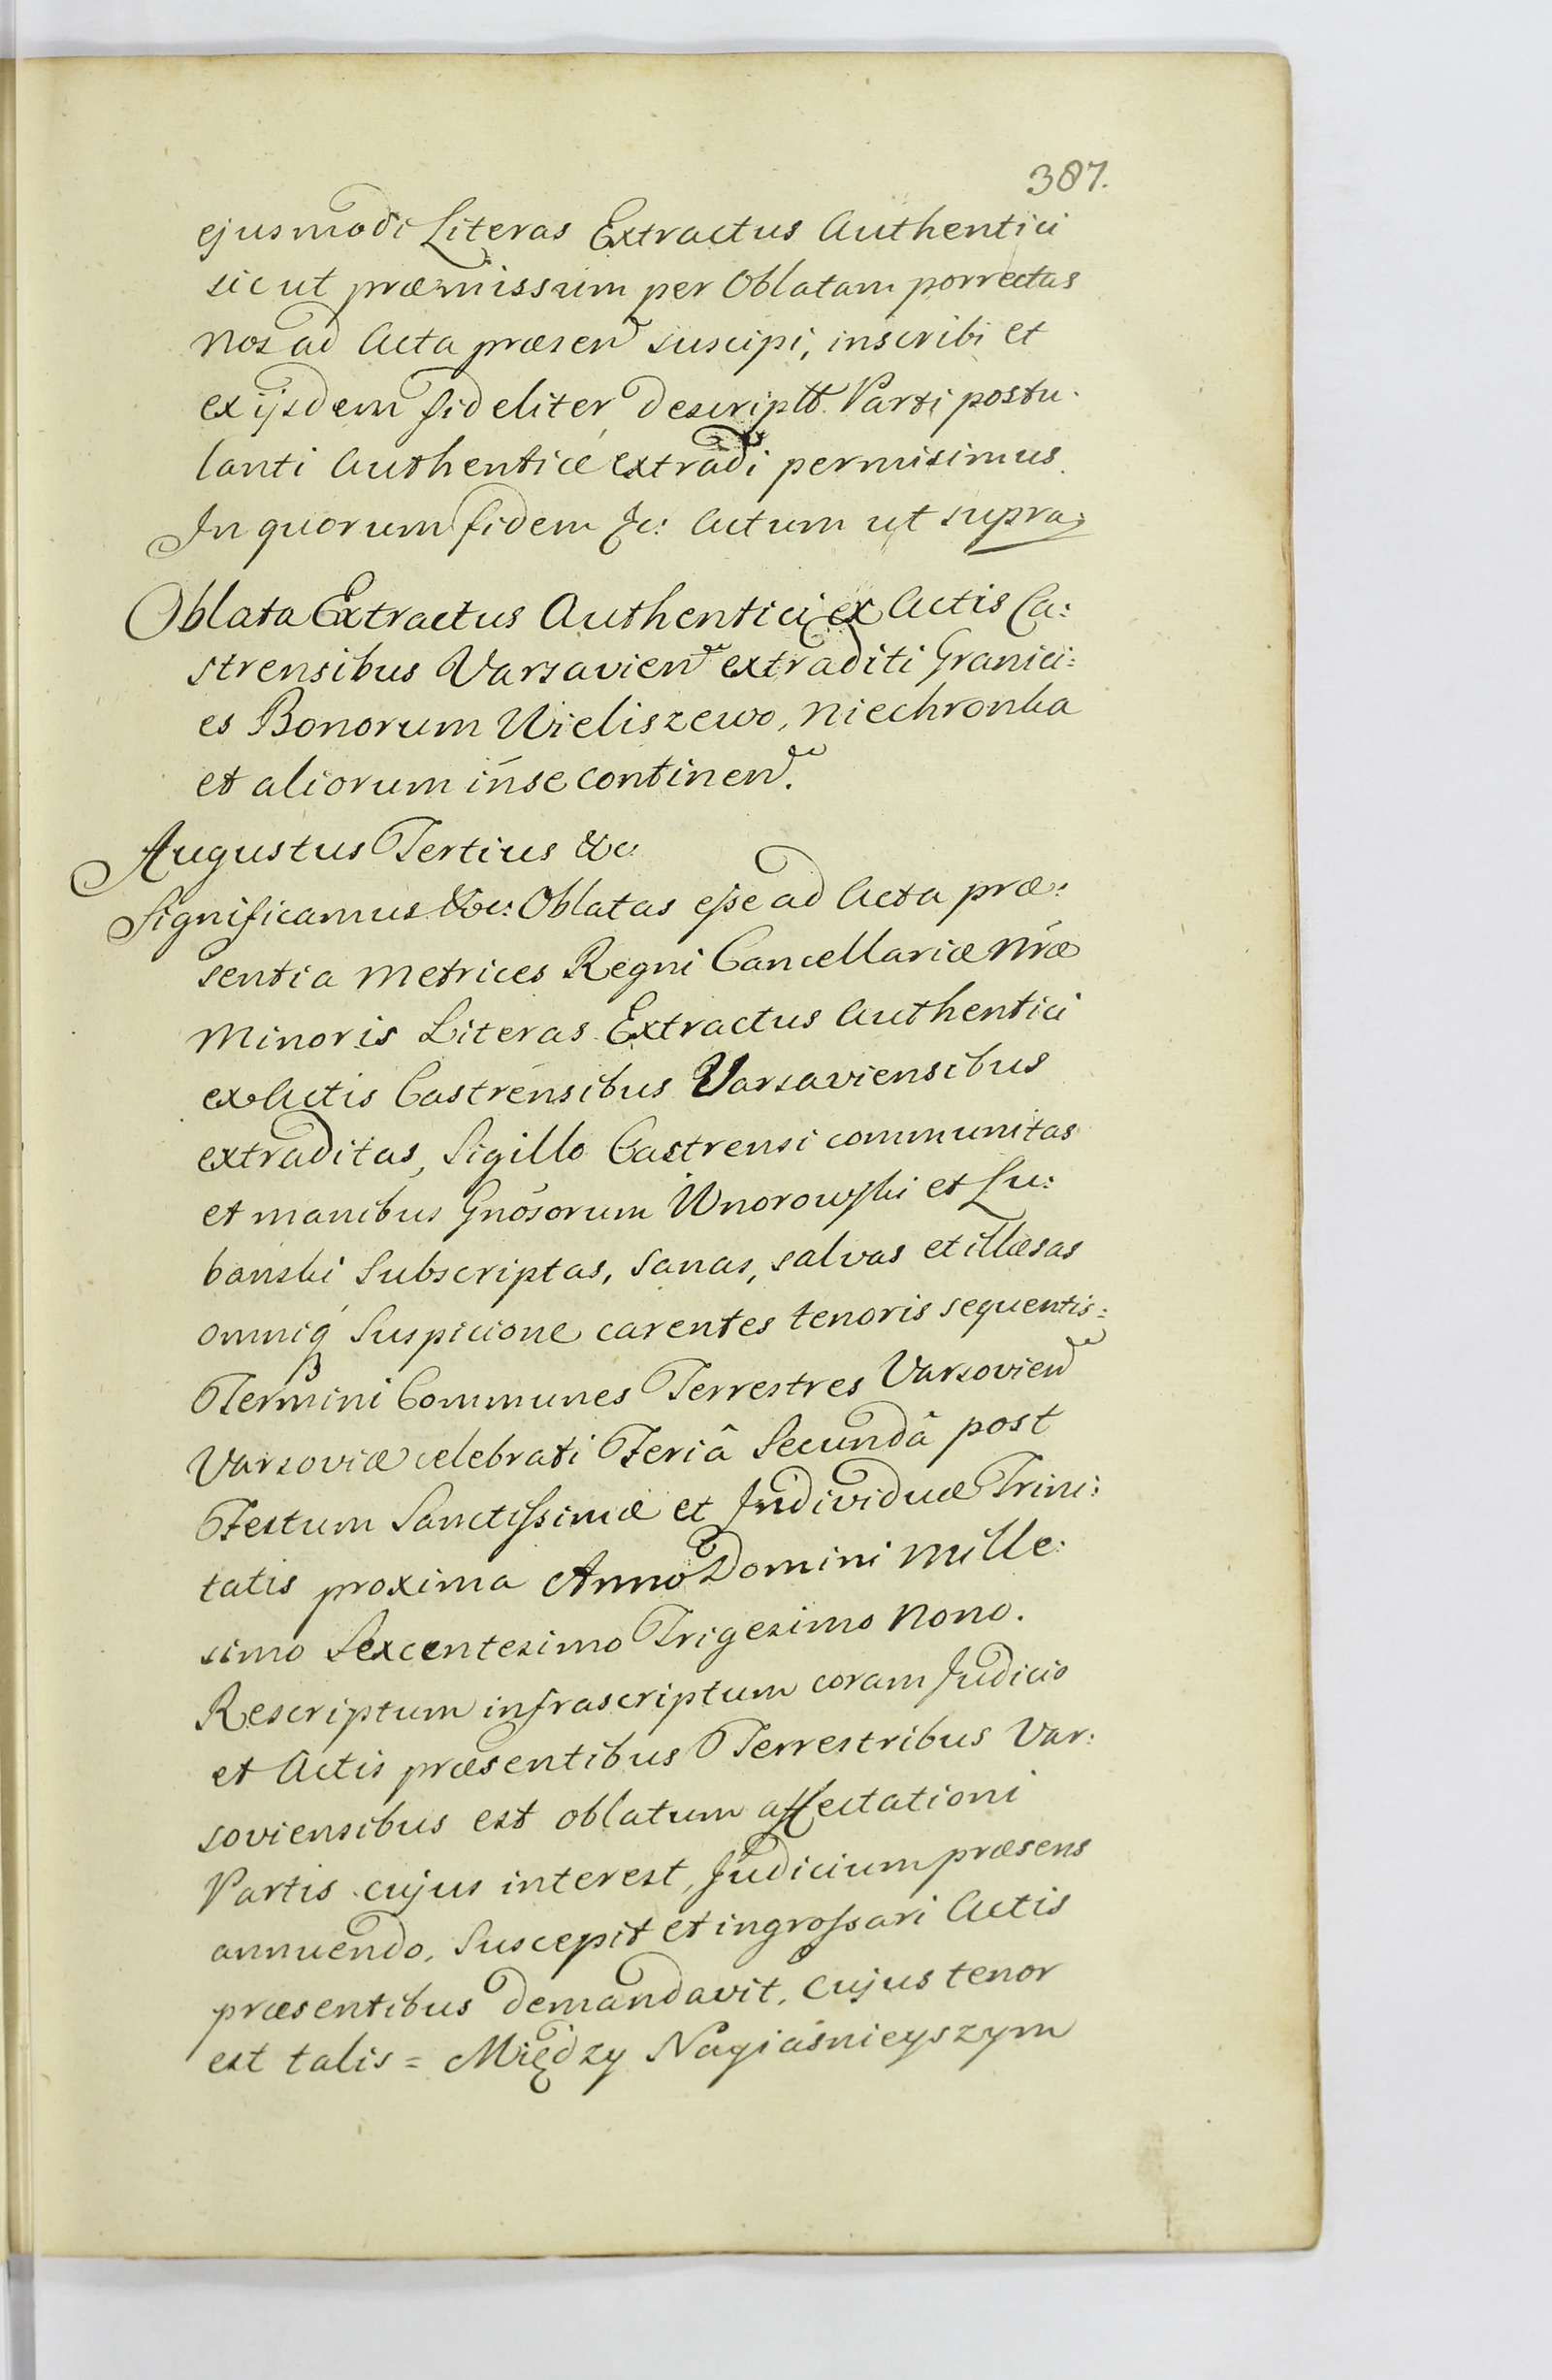 387.
ejusmodi Literas Extractus Authentici
sicut præmissum per Oblatam porrectas
Nos ad Acta præsen suscipi, inscribi et
ex ijsdem fideliter descriptt Parti postu-
lanti Authenticè extradi permisimus.
In quorum fidem &c: Actum ut supra,
Oblata Extractus Authentici ex Actis Ca:
strensibus Varsavien extraditi Granici:
es Bonorum Wieliszewo, Niechronka
et aliorum in se continen.
Augustus Tertius &c
Significamus &c: Oblatas esse ad Acta præ:
sentia Metrices Regni Cancellariæ Nræ
Minoris Literas Extractus Authentici
ex Actis Castrensibus Varsaviensibus
extraditas, Sigillo Castrensi communitas
et manibus Gnosorum Wnorowski et Lu:
banski Subscriptas, sanas, salvas et illæsas
omniq Suspicione carentes tenoris sequentis:
Termini Communes Terrestres Varsovien
Varsoviæ celebrati Feriâ Secundâ post
Festum Sanctissimæ et Individuæ Trini:
tatis proxima Anno Domini Mille:
simo Sexcentesimo Trigesimo Nono.
Rescriptum infrascriptum coram Judicio
et Actis præsentibus Terrestribus Var:
soviensibus est oblatum affectationi
Partis cujus interest, Judicium præsens
annuendo, Suscepit et ingrossari Actis
præsentibus demandavit, cujus tenor
est talis = Między Nayiaśnieyszym